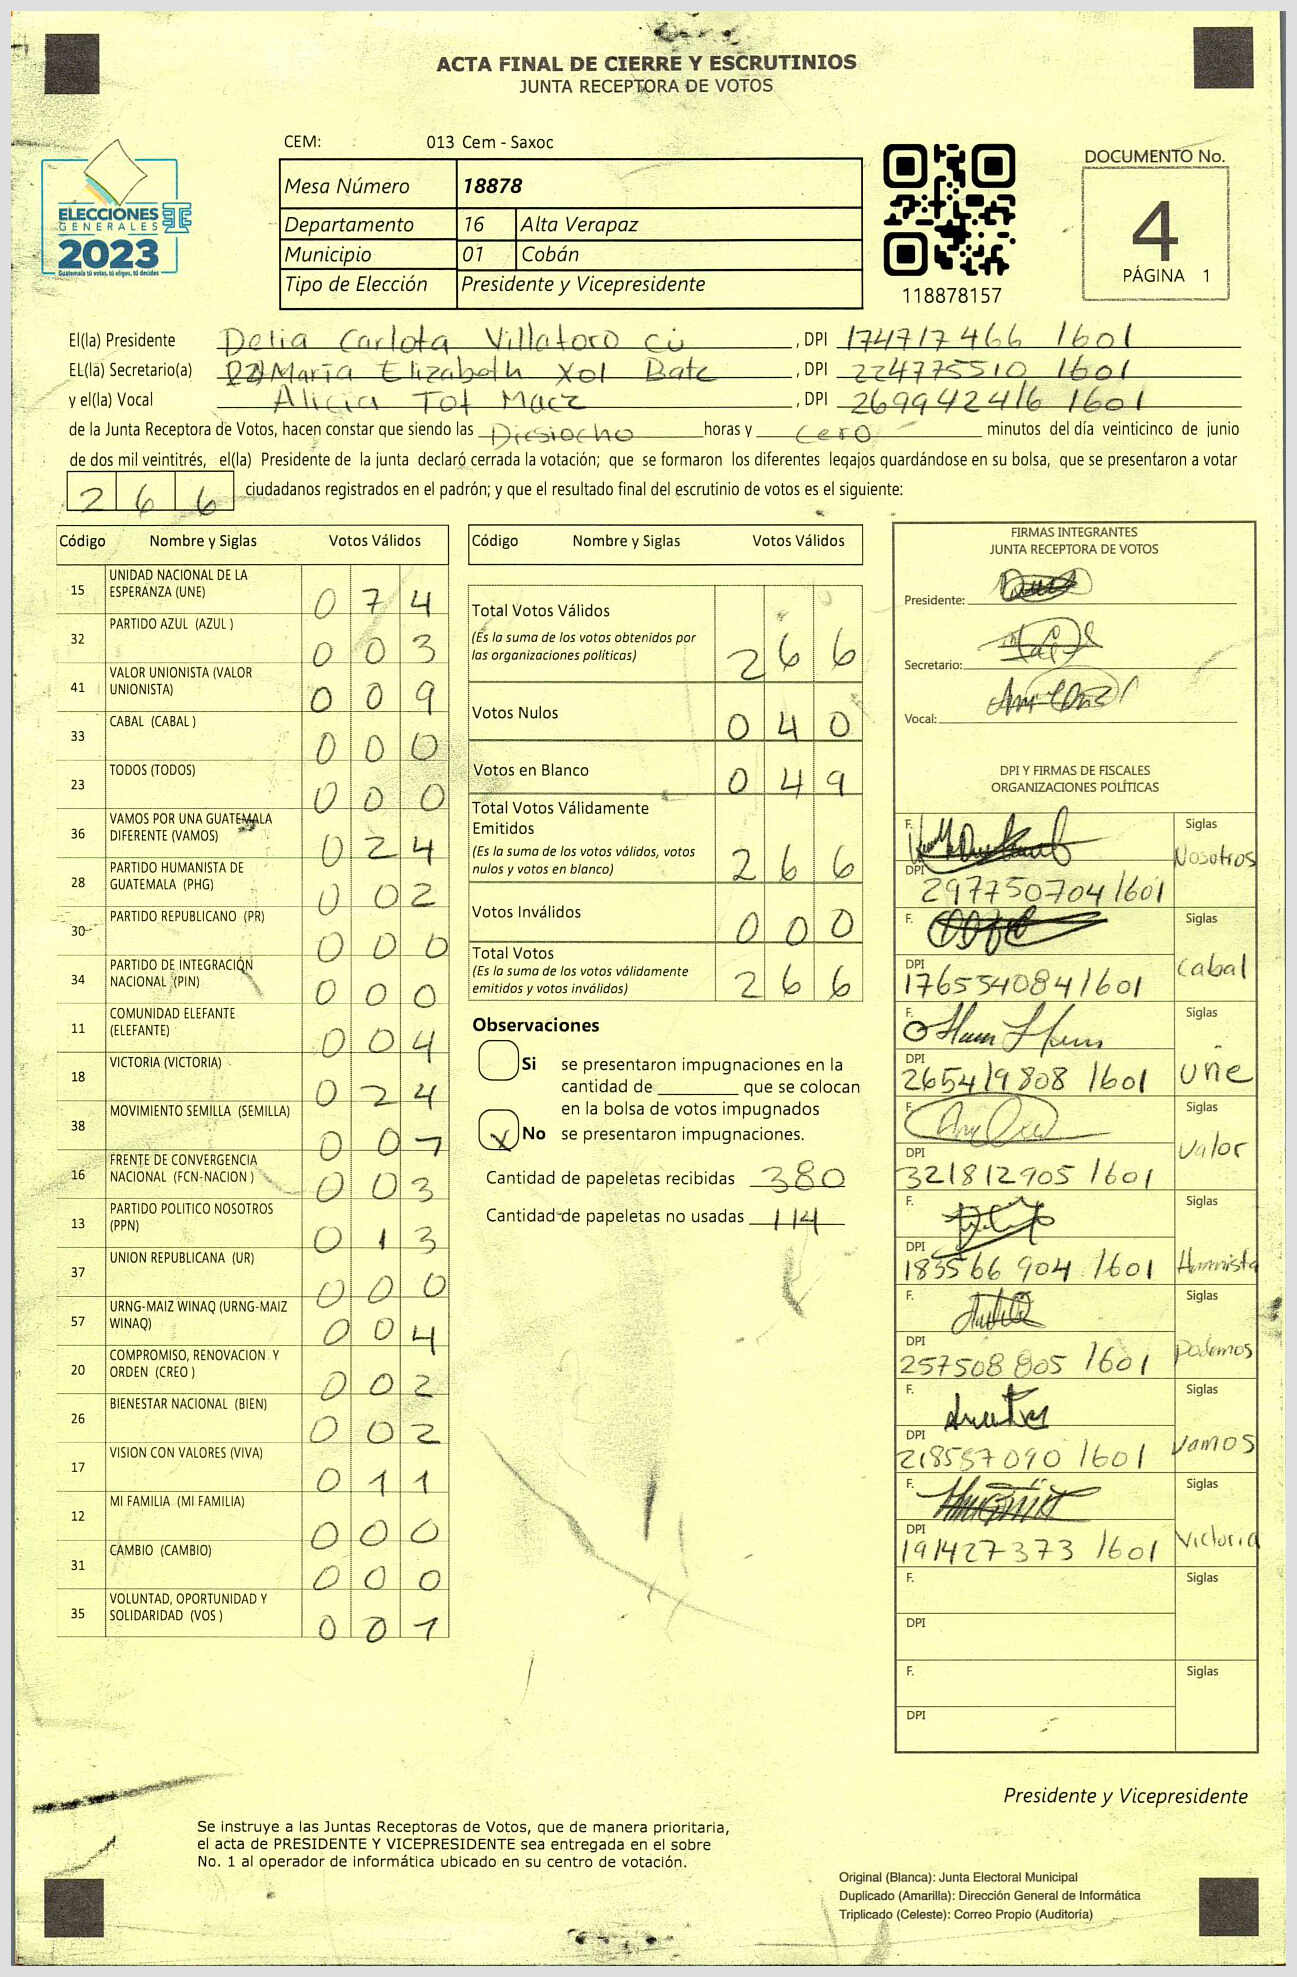 ACTA FINAL DE CIERRE Y ESCRUTINIOS
JUNTA RECEPTORA DE VOTOS
CEM: 013 Cem - Saxoc
Mesa Número 18878
Departamento 16 Alta Verapaz
Municipio 01 Cobán
Tipo de Elección Presidente y Vicepresidente
ELECCIONES
GENERALES
2023
Guatemala tú votas, tú eliges, tú decides
118878157
DOCUMENTO No.
4
PÁGINA 1
El(la) Presidente Delia Carlota Villatoro cú , DPI 174717466 1601
EL(la) Secretario(a) María Elizabeth Xol Batc , DPI 224775510 1601
y el(la) Vocal Alicia Tot Macz , DPI 269942416 1601
de la Junta Receptora de Votos, hacen constar que siendo las Diesiocho horas y cero minutos del día veinticinco de junio
de dos mil veintitrés, el(la) Presidente de la junta declaró cerrada la votación; que se formaron los diferentes legajos guardándose en su bolsa, que se presentaron a votar
266 ciudadanos registrados en el padrón; y que el resultado final del escrutinio de votos es el siguiente:
Código Nombre y Siglas Votos Válidos
15 UNIDAD NACIONAL DE LA ESPERANZA (UNE) 074
32 PARTIDO AZUL (AZUL ) 003
41 VALOR UNIONISTA (VALOR UNIONISTA) 009
33 CABAL (CABAL ) 000
23 TODOS (TODOS) 000
36 VAMOS POR UNA GUATEMALA DIFERENTE (VAMOS) 024
28 PARTIDO HUMANISTA DE GUATEMALA (PHG) 002
30 PARTIDO REPUBLICANO (PR) 000
34 PARTIDO DE INTEGRACIÓN NACIONAL (PIN) 000
11 COMUNIDAD ELEFANTE (ELEFANTE) 004
18 VICTORIA (VICTORIA) 024
38 MOVIMIENTO SEMILLA (SEMILLA) 007
16 FRENTE DE CONVERGENCIA NACIONAL (FCN-NACION ) 003
13 PARTIDO POLITICO NOSOTROS (PPN) 013
37 UNION REPUBLICANA (UR) 000
57 URNG-MAIZ WINAQ (URNG-MAIZ WINAQ) 004
20 COMPROMISO, RENOVACION Y ORDEN (CREO ) 002
26 BIENESTAR NACIONAL (BIEN) 002
17 VISION CON VALORES (VIVA) 011
12 MI FAMILIA (MI FAMILIA) 000
31 CAMBIO (CAMBIO) 000
35 VOLUNTAD, OPORTUNIDAD Y SOLIDARIDAD (VOS ) 001
Código Nombre y Siglas Votos Válidos
Total Votos Válidos 266
(Es la suma de los votos obtenidos por
las organizaciones políticas)
Votos Nulos 040
Votos en Blanco 049
Total Votos Válidamente
Emitidos
(Es la suma de los votos válidos, votos
nulos y votos en blanco) 266
Votos Inválidos 000
Total Votos
(Es la suma de los votos válidamente
emitidos y votos inválidos) 266
Observaciones
Si se presentaron impugnaciones en la
cantidad de ________ que se colocan
en la bolsa de votos impugnados
X No se presentaron impugnaciones.
Cantidad de papeletas recibidas 380
Cantidad de papeletas no usadas 114
FIRMAS INTEGRANTES
JUNTA RECEPTORA DE VOTOS
Presidente:
Secretario:
Vocal:
DPI Y FIRMAS DE FISCALES
ORGANIZACIONES POLÍTICAS
F. Siglas Nosotros
DPI 297750704 1601
F. Siglas cabal
DPI 176554084 1601
F. Siglas une
DPI 265419808 1601
F. Siglas valor
DPI 321812905 1601
F. Siglas Humnista
DPI 183566 904 1601
F. Siglas podemos
DPI 257508 805 1601
F. Siglas vamos
DPI 218557090 1601
F. Siglas Victoria
DPI 191427373 1601
F. Siglas
DPI
F. Siglas
DPI
Presidente y Vicepresidente
Se instruye a las Juntas Receptoras de Votos, que de manera prioritaria,
el acta de PRESIDENTE Y VICEPRESIDENTE sea entregada en el sobre
No. 1 al operador de informática ubicado en su centro de votación.
Original (Blanca): Junta Electoral Municipal
Duplicado (Amarilla): Dirección General de Informática
Triplicado (Celeste): Correo Propio (Auditoría)